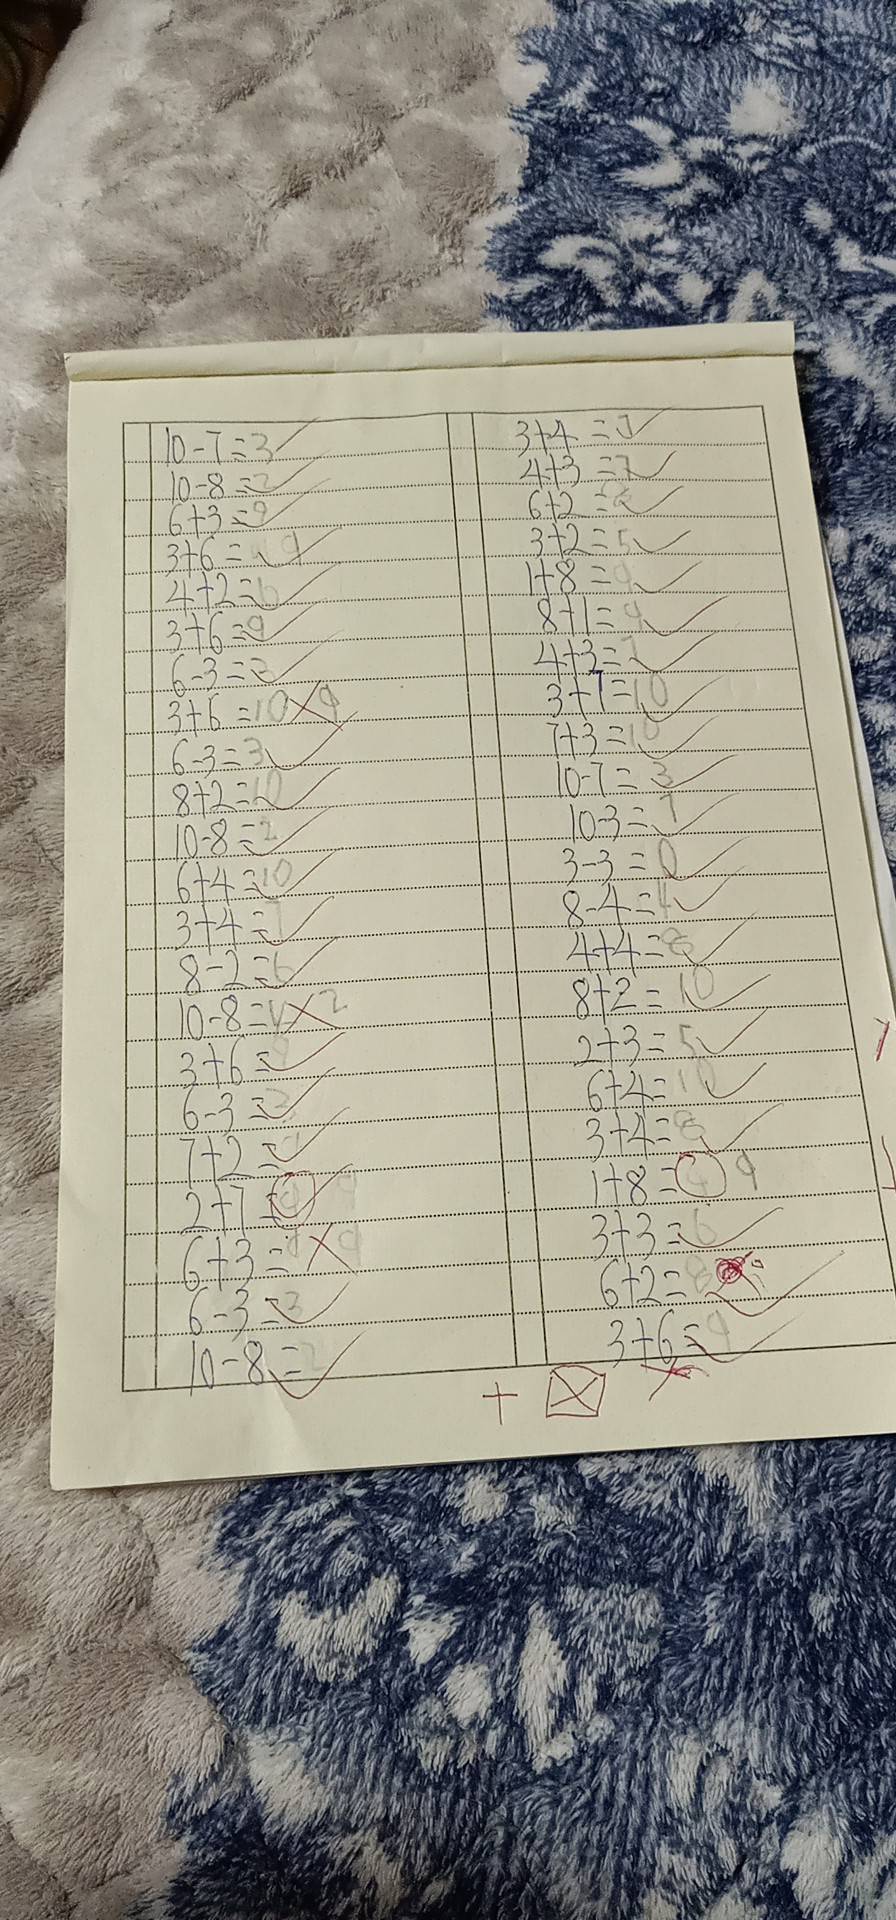 10-7=3
10-8=2
6+3=9
3+6=9
4+2=6
3+6=9
6-3=3
3+6=10×9
6-3=3
8+2=10
10-8=2
6+4=10
3+4=7
8-2=6
10-8=4×2
3+6=9
6-3=3
7+2=9
2+7=9
6+3= ×9
6-3=3
10-8=2
3+4=7
4+3=7
6+2=8
3+2=5
1+8=9
8+1=9
4+3=7
3+7=10
7+3=10
10-7=3
10-3=7
3-3=0
8-4=4
4+4=8
8+2=10
2+3=5
6+4=10
3+4=8
1+8= 9
3+3=6
6+2=8
3+6=9
+ × ×